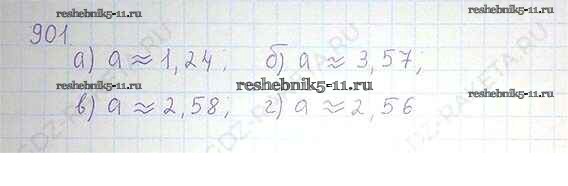 reshebnik5-11.ru reshebnik5-11.ru
901
а) a ≈ 1,24; б) a ≈ 3,57;
reshebnik5-11.ru
в) a ≈ 2,58; г) a ≈ 2,56
reshebnik5-11.ru reshebnik5-11.ru